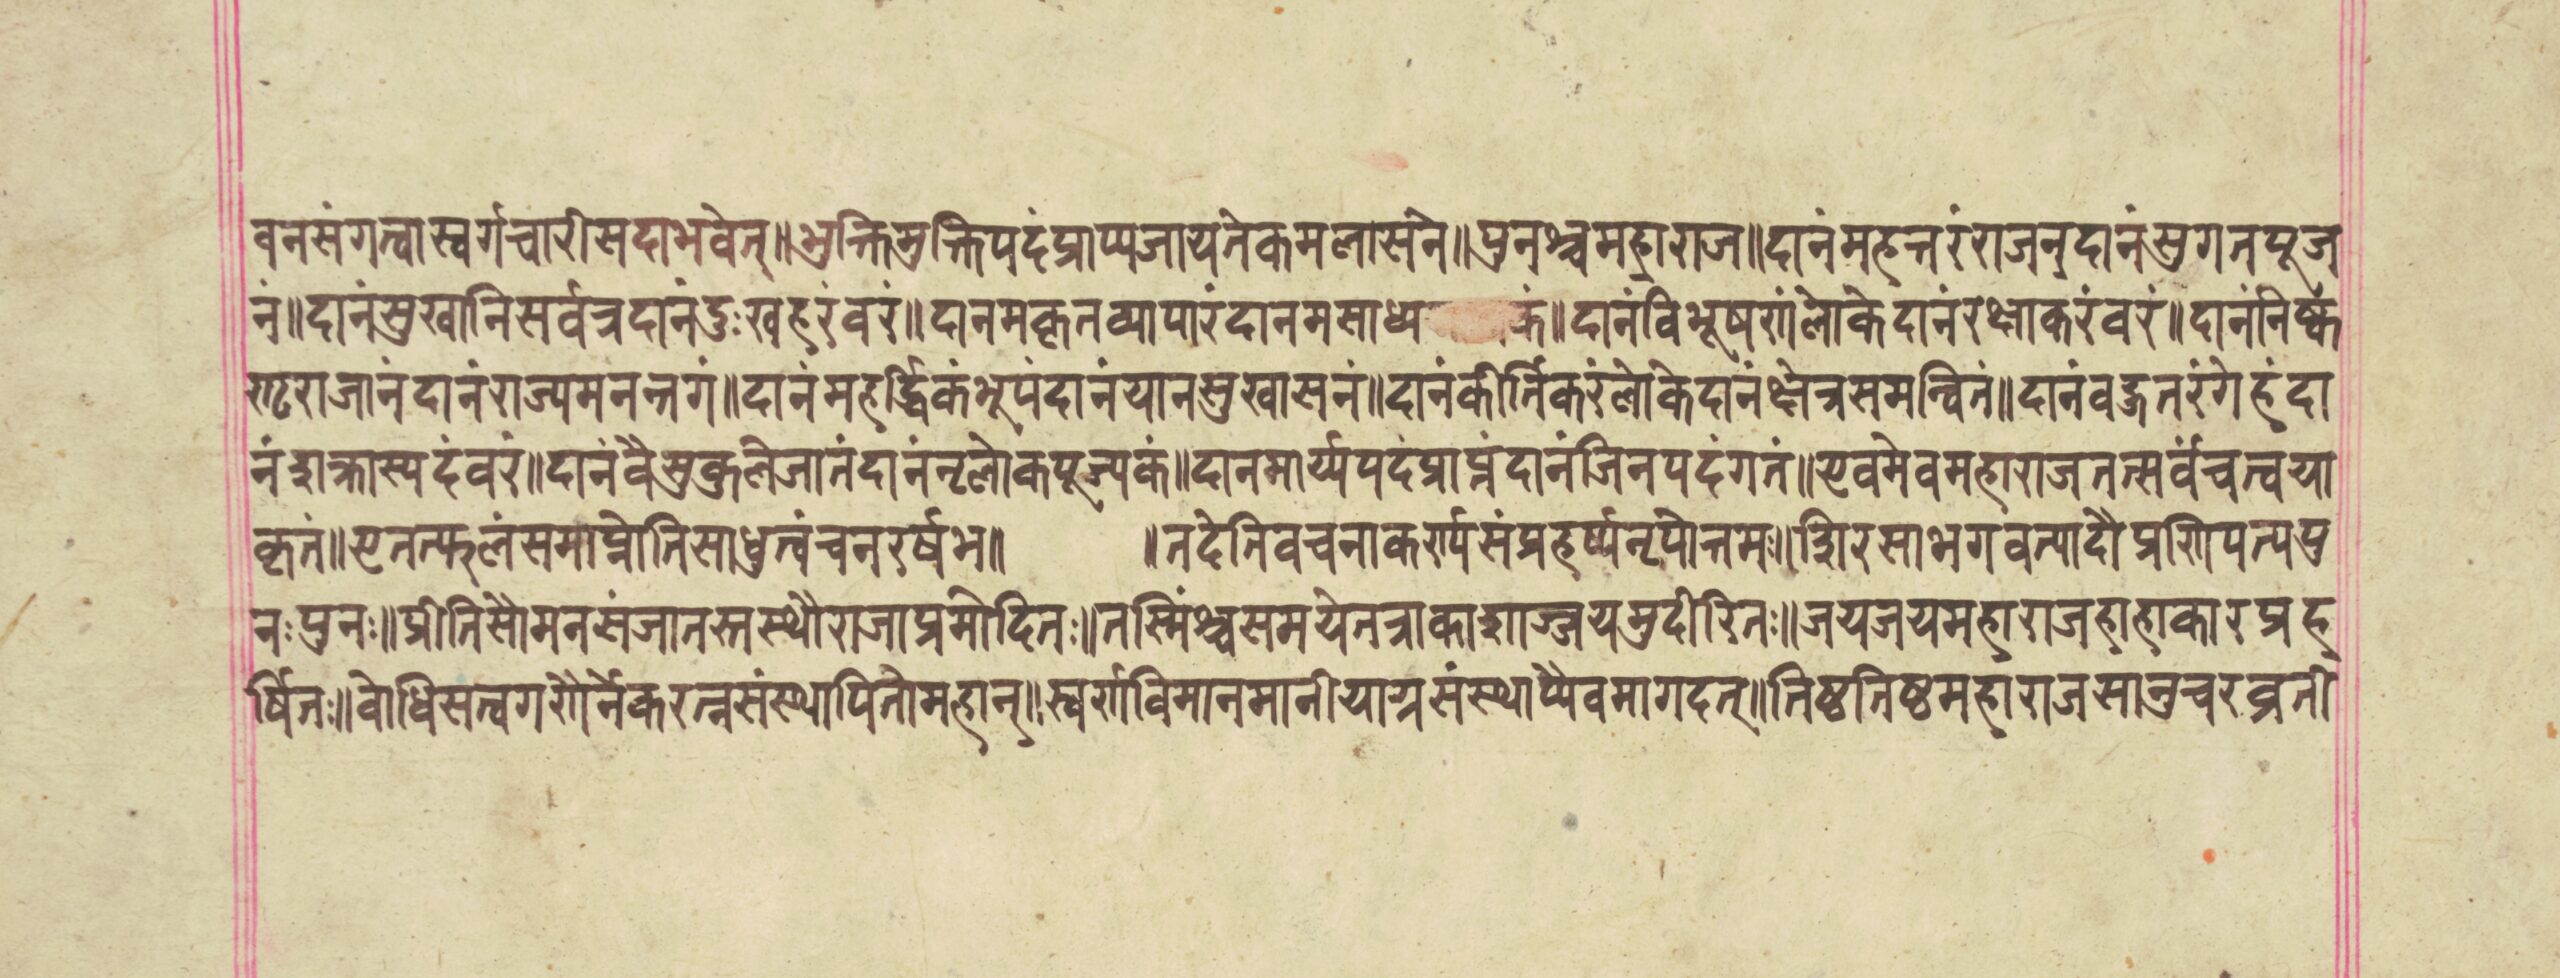 वनसंगत्वास्वर्गचारीसदाभवेत्॥भुक्तिमुक्तिपदंप्राप्यजायतेकमलासने॥पुनश्चमहाराज॥दानंमहत्तरंराजन्दानंसुगतपूज
नं॥दानंसुखानिसर्वत्रदानंदुःखहरंवरं॥दानमकृतव्यापारंदानमसाध्य कं॥दानंविभूषणंलोकेदानंरक्षाकरंवरं॥दानंनिष्कं
ण्टराजानंदानंराज्यमनन्तगं॥दानंमहर्द्धिकंभूपंदानंयानसुखासनं॥दानंकीर्तिकरंलोकेदानंक्षेत्रसमन्वितं॥दानंवद्गतरंगेहंदा
नंशक्रास्पदंवरं॥दानंवैसुकुलेजातंदानंनृलोकपूज्यकं॥दानमार्य्यपदंप्राप्तंदानंजिनपदंगतं॥एवमेवमहाराजतत्सर्वंचत्वया
कृतं॥एतत्फलंसमाप्नोतिसाधुत्वंचनरर्षभ॥ ॥तदेतिवचनाकर्ण्यसंप्रहर्ष्यनृपोत्तमः॥शिरसाभगवत्पादौप्रणिपत्यपु
नःपुनः॥प्रीतिसौमनसंजातस्तस्थौराजाप्रमोदितः॥तस्मिंश्चसमयेतत्राकाशाज्जयमुदीरितः॥जयजयमहाराजहाहाकारप्रह
र्षितः॥बोधिसत्वगणैर्नैकरत्नसंस्थापितोमहान्॥स्वर्णविमानमानीयाग्रसंस्थाप्यैवमागदत्॥तिष्ठतिष्ठमहाराजसानुचरव्रती